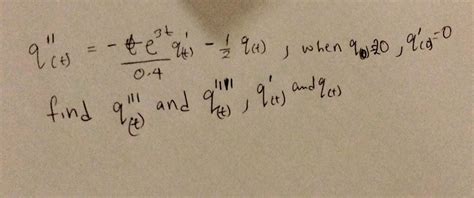 q''(t) = - e^{3t}/0.4 q'(t) - 1/2 q(t) , when q(0)=20 , q'(0)=0
find q'''(t) and q''''(t) , q'(t) and q(t)